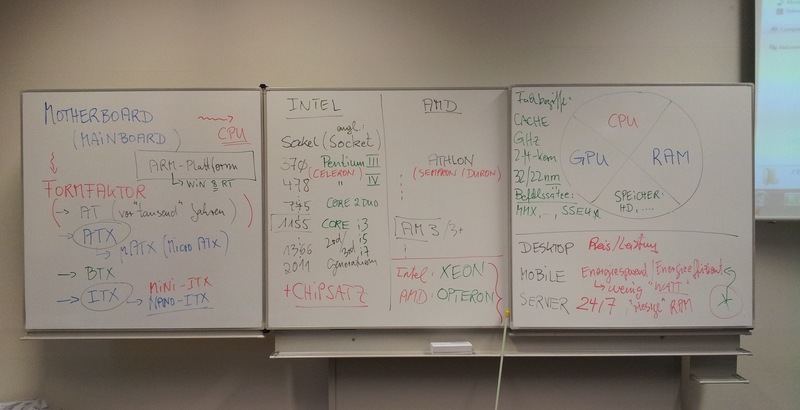 MOTHERBOARD
(MAINBOARD)
CPU
ARM-Plattform
WIN 8 RT
FORMFAKTOR
(→ AT (vor "tausend" Jahren))
→ ATX
→ mATX (Micro ATX)
→ BTX
→ ITX → MINI-ITX
NANO-ITX
INTEL
engl.:
Sockel (Socket)
370 Pentium III
(CELERON)
478 " IV
775 CORE 2 DUO
1155 CORE i3
1366 2nd/ i5
3rd i7
2011 Generation
+CHIPSATZ
AMD
ATHLON
(SEMPRON/DURON)
AM3/3+
Intel: XEON
AMD: OPTERON
Fachbegriffe:
CACHE
GHz
2,4-kern
32/22nm
Befehlssätze:
MMX, .., SSE4x
CPU
GPU
RAM
SPEICHER:
HD, ....
DESKTOP Preis/Leistung
MOBILE Energiesparend/Energieeffizient
→ wenig "WATT"
SERVER 24/7 "Massig" RAM